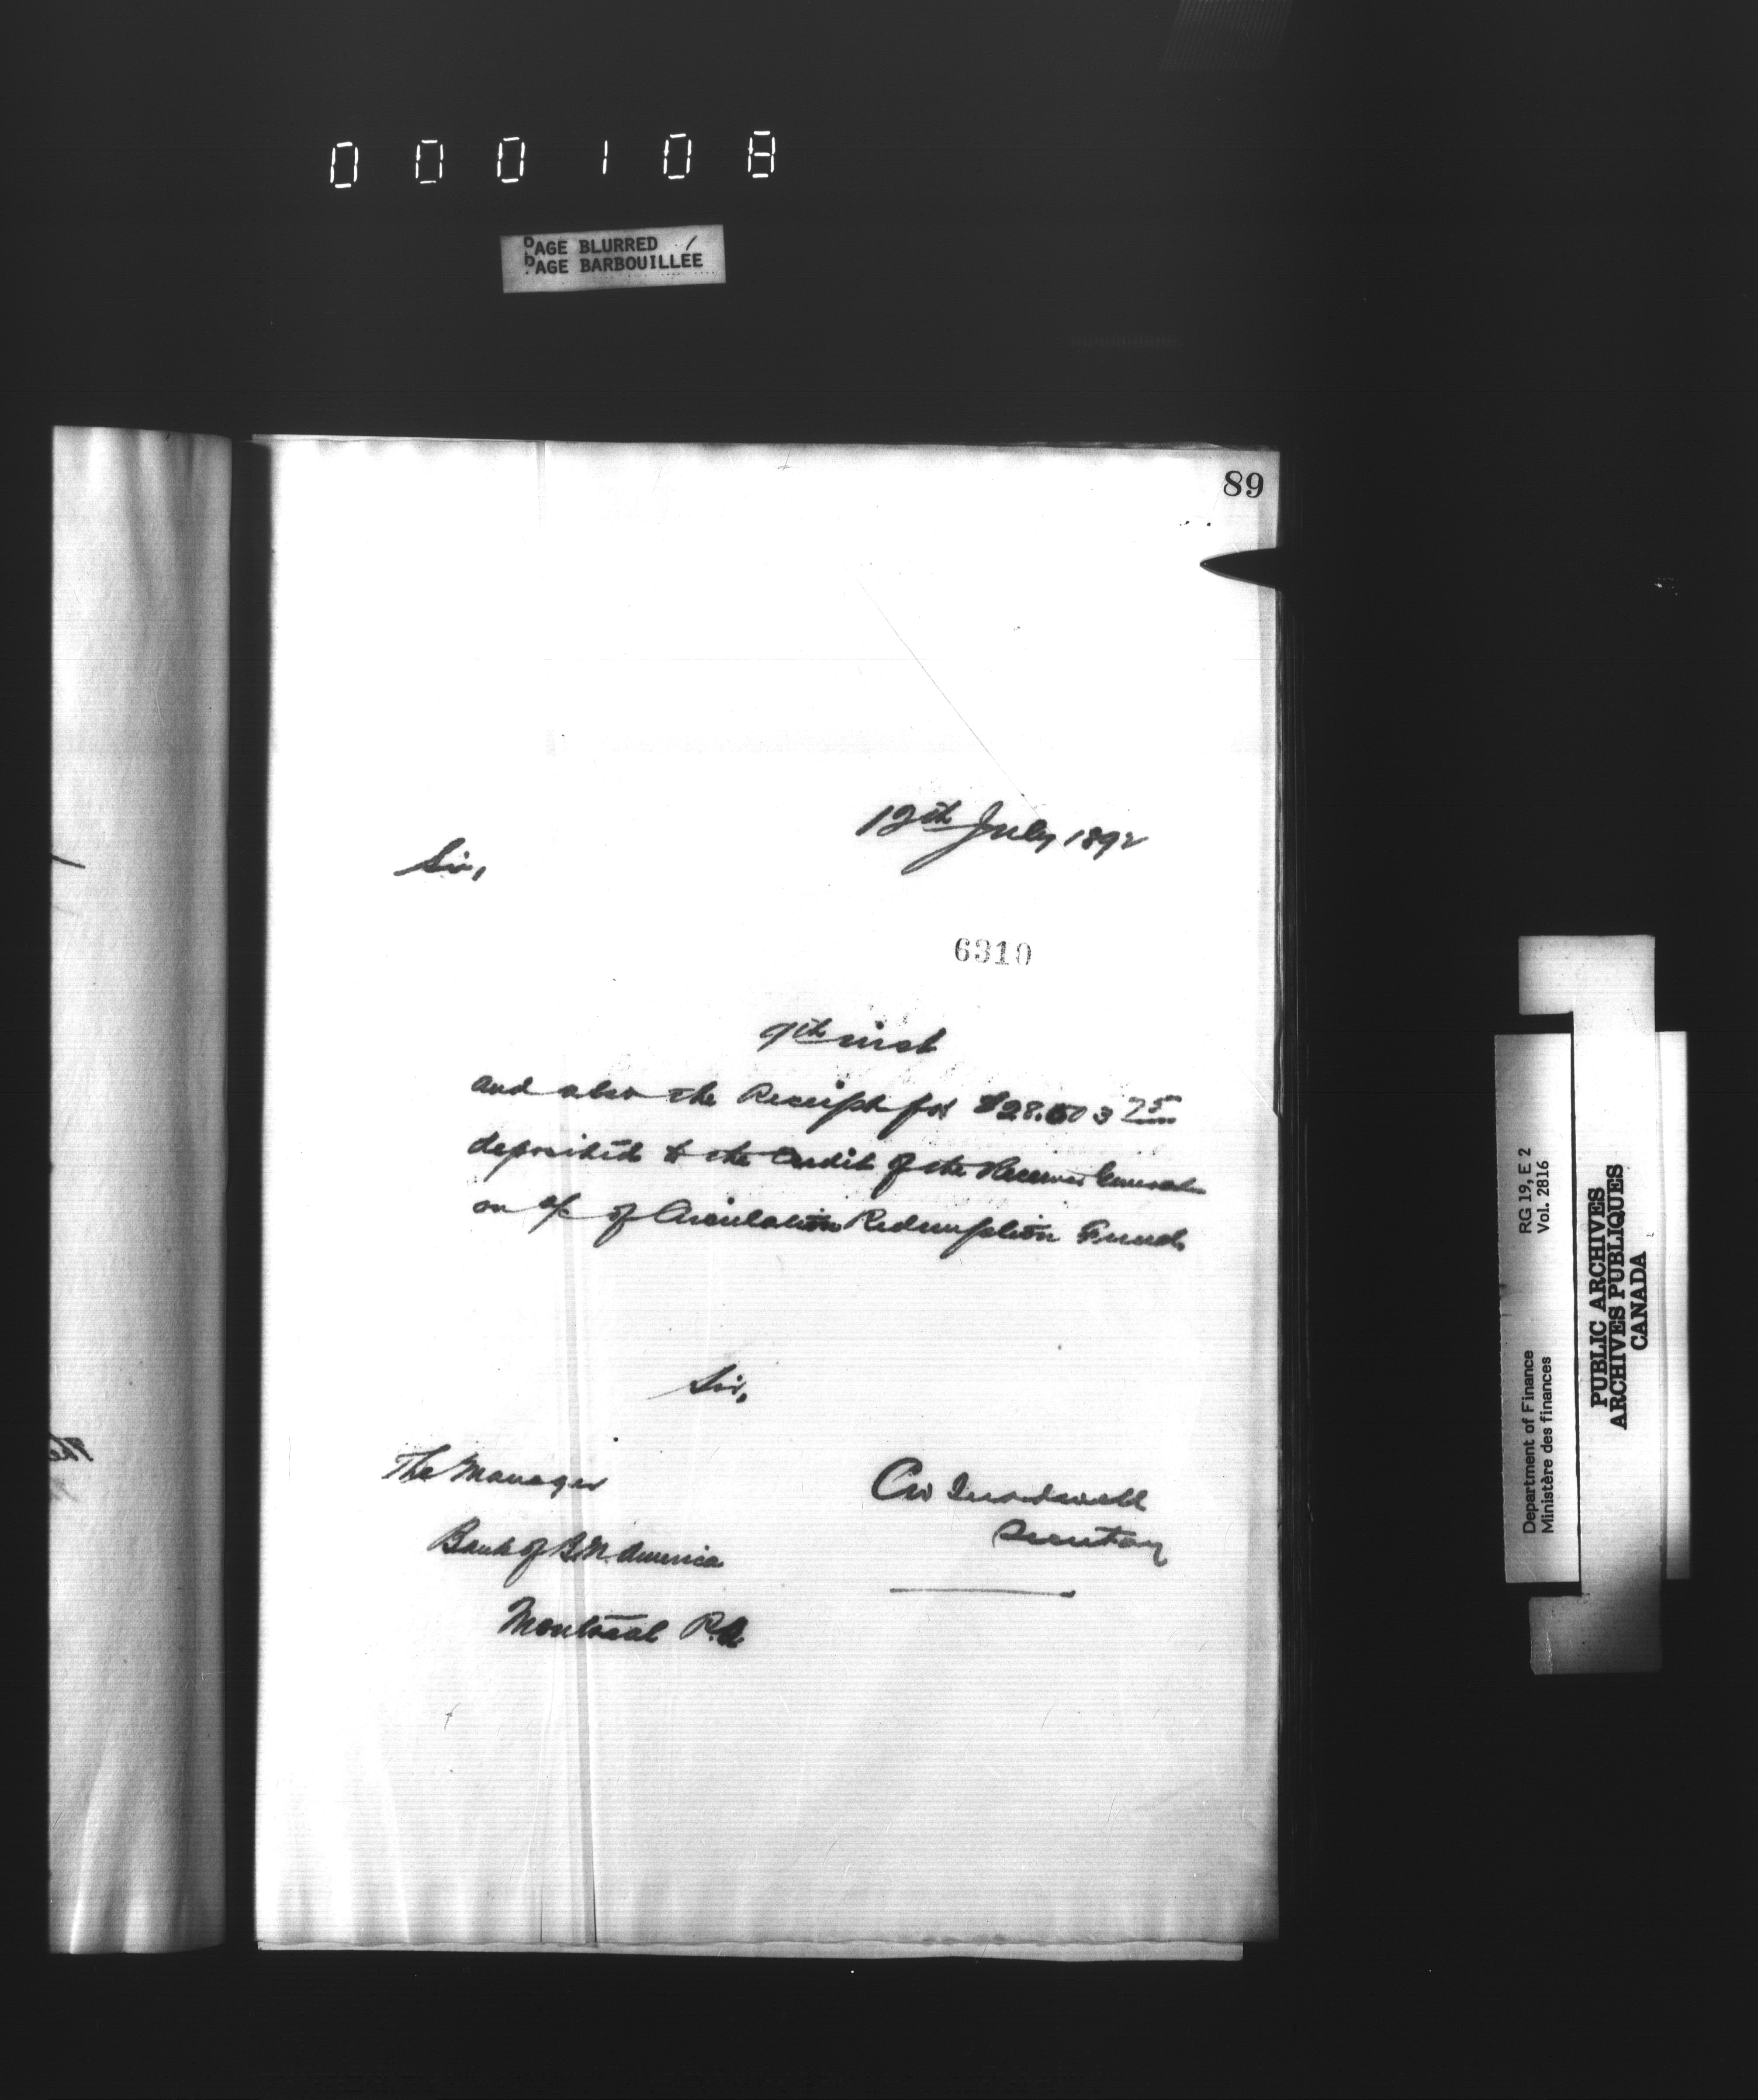 000108
PAGE BLURRED /
PAGE BARBOUILLÉE
89
12th July 1892
Sir,
6310
9th inst
and also the Receipt for $28.503 75
deposited to the Credit of the Receiver General
on a/c of Circulation Redemption Fund.
Sir,
The Manager
Bank of B.N. America
Montreal P.Q.
Secretary
RG 19, E 2
Vol. 2816
Department of Finance
Ministère des finances
PUBLIC ARCHIVES
ARCHIVES PUBLIQUES
CANADA